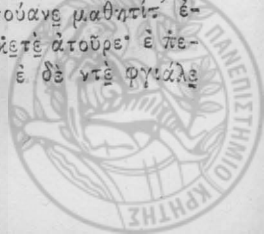 τούανε̱ μαθητίτ᾽ ἐ-
κε̱τὲ ἀτοῦρε· ἐ πε-
ἐ δὲ ντὲ̱ φγιάλε̱
ΠΑΝΕΠΙΣΤΗΜΙΟ ΚΡΗΤΗΣ